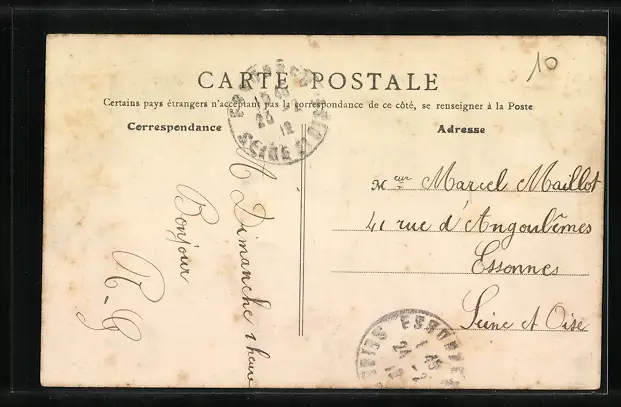 10
CARTE POSTALE
Certains pays étrangers n'acceptant pas la correspondance de ce côté, se renseigner à la Poste
Correspondance
Adresse
A Dimanche 1 heure
Bonjour
R-G
Meur Marcel Maillot
41 rue d'Angoulêmes
Essonnes
Seine et Oise
23
12
SEINE
ESSONNES
24 -2
12